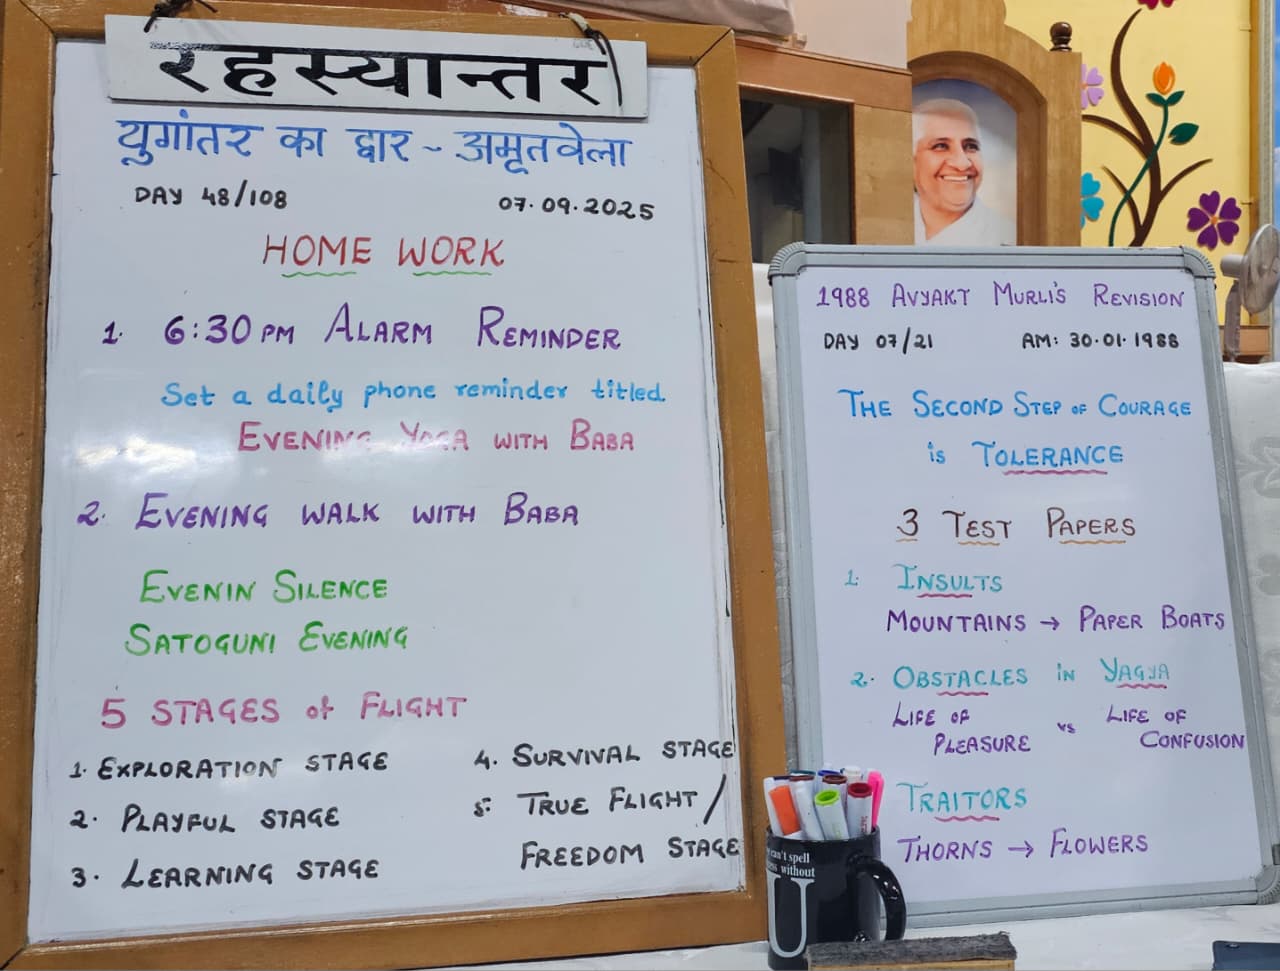 रहस्यान्तर
युगांतर का द्वार ~ अमृतवेला
DAY 48/108 07.09.2025
HOME WORK
1. 6:30 PM ALARM REMINDER
Set a daily phone reminder titled
EVENING YOGA WITH BABA
2. EVENING WALK WITH BABA
EVENIN SILENCE
SATOGUNI EVENING
5 STAGES of FLIGHT
1. EXPLORATION STAGE
2. PLAYFUL STAGE
3. LEARNING STAGE
4. SURVIVAL STAGE
5. TRUE FLIGHT /
FREEDOM STAGE
1988 AVYAKT MURLI'S REVISION
DAY 07/21 AM: 30.01.1988
THE SECOND STEP OF COURAGE
is TOLERANCE
3 TEST PAPERS
1. INSULTS
MOUNTAINS → PAPER BOATS
2. OBSTACLES IN YAGYA
LIFE OF PLEASURE vs LIFE OF CONFUSION
TRAITORS
THORNS → FLOWERS
can't spell
without
U